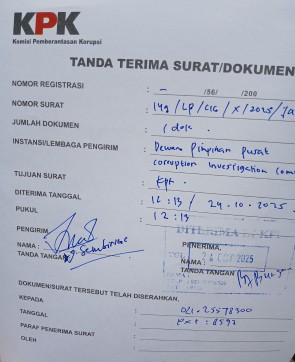 KPK
Komisi Pemberantasan Korupsi
TANDA TERIMA SURAT/DOKUMEN
NOMOR REGISTRASI : - /56/ /200
NOMOR SURAT : 149/LP/CIC/X/2025/Ja
JUMLAH DOKUMEN : 1 dok.
INSTANSI/LEMBAGA PENGIRIM : Dewan Pimpinan pusat
corruption Investigation Com
TUJUAN SURAT : KPK.
DITERIMA TANGGAL : 12:13 / 24.10.2025
PUKUL : 12:13
PENGIRIM,
PENERIMA,
DITERIMA KPK
24 OCT 2025
NAMA :
NAMA :
TANDA TANGAN
TANDA TANGAN
DOKUMEN/SURAT TERSEBUT TELAH DISERAHKAN,
KEPADA : 021.25578300
TANGGAL : ext : 8597
PARAF PENERIMA SURAT :
OLEH :